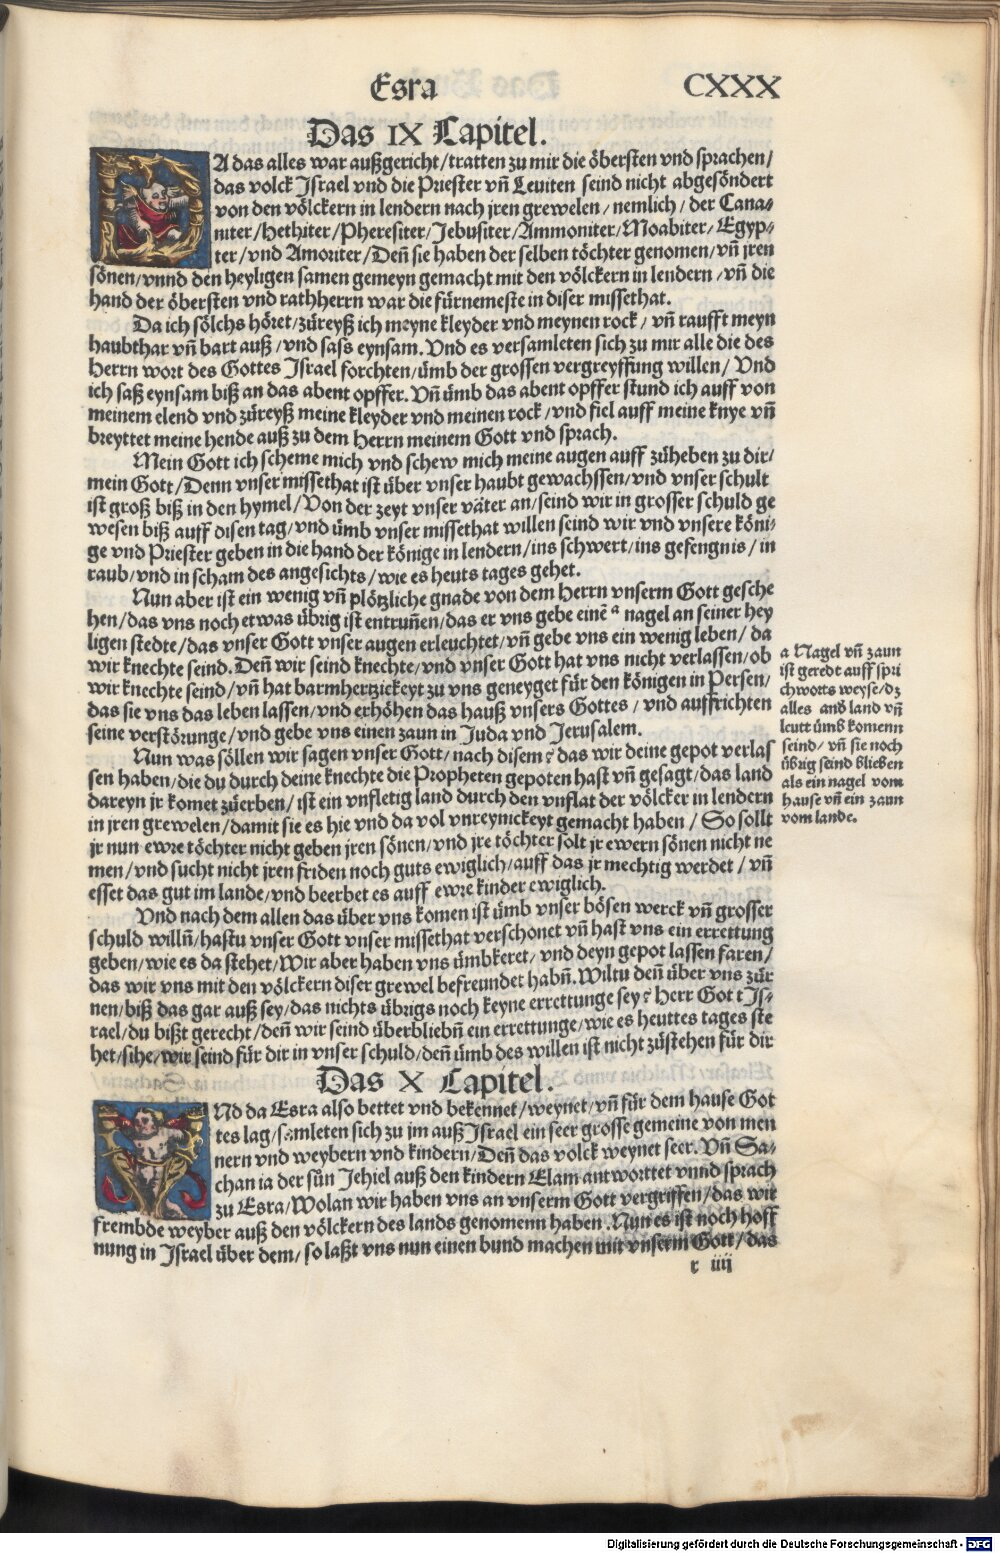 Esra CXXX
Das IX Capitel.
DA das alles war außgericht/tratten zu mir die öbersten vnd sprachen/
das volck Israel vnd die Priester vñ Leuiten seind nicht abgesöndert
von den völckern in lendern nach jren grewelen/nemlich/der Cana⸗
niter/Hethiter/Pheresiter/Jebusiter/Ammoniter/Moabiter/Egyp⸗
ter/vnd Amoriter/Deñ sie haben der selben töchter genomen/vñ jren
sönen/vnnd den heyligen samen gemeyn gemacht mit den völckern in lendern/vñ die
hand der öbersten vnd rathherrn war die fürnemeste in diser missethat.
Da ich sölchs höret/zůreyß ich meyne kleyder vnd meynen rock/vñ raufft meyn
haubthar vñ bart auß/vnd sass eynsam. Vnd es versamleten sich zu mir alle die des
Herrn wort des Gottes Israel forchten/ümb der grossen vergreyffung willen/Vnd
ich saß eynsam biß an das abent opffer. Vñ ümb das abent opffer stund ich auff von
meinem elend vnd zůreyß meine kleyder vnd meinen rock/vnd fiel auff meine knye vñ
breyttet meine hende auß zu dem Herrn meinem Gott vnd sprach.
Mein Gott ich scheme mich vnd schew mich meine augen auff zůheben zu dir/
mein Gott/Denn vnser missethat ist über vnser haubt gewachssen/vnd vnser schult
ist groß biß in den hymel/Von der zeyt vnser väter an/seind wir in grosser schuld ge
wesen biß auff disen tag/vnd ümb vnser missethat willen seind wir vnd vnsere köni⸗
ge vnd Priester geben in die hand der könige in lendern/ins schwert/ins gefengnis/in
raub/vnd in scham des angesichts/wie es heuts tages gehet.
Nun aber ist ein wenig vñ plötzliche gnade von dem Herrn vnserm Gott gesche
hen/das vns noch etwas übrig ist entruñen/das er vns gebe einē ᵃ nagel an seiner hey
ligen stedte/das vnser Gott vnser augen erleuchtet/vñ gebe vns ein wenig leben/da
wir knechte seind. Deñ wir seind knechte/vnd vnser Gott hat vns nicht verlassen/ob
wir knechte seind/vñ hat barmhertzickeyt zu vns geneyget für den königen in Persen/
das sie vns das leben lassen/vnd erhöhen das hauß vnsers Gottes/vnd auffrichten
seine verstörunge/vnd gebe vns einen zaun in Juda vnd Jerusalem.
Nun was söllen wir sagen vnser Gott/nach disem? das wir deine gepot verlas
sen haben/die du durch deine knechte die Propheten gepoten hast vñ gesagt/das land
dareyn jr komet zůerben/ist ein vnfletig land durch den vnflat der völcker in lendern
in jren grewelen/damit sie es hie vnd da vol vnreynickeyt gemacht haben/So sollt
jr nun ewre töchter nicht geben jren sönen/vnd jre töchter solt jr ewern sönen nicht ne
men/vnd sucht nicht jren friden noch guts ewiglich/auff das jr mechtig werdet/vñ
esset das gut im lande/vnd beerbet es auff ewre kinder ewiglich.
Vnd nach dem allen das über vns komen ist ümb vnser bösen werck vñ grosser
schuld willñ/hastu vnser Gott vnser missethat verschonet vñ hast vns ein errettung
geben/wie es da stehet/Wir aber haben vns ümbkeret/vnd deyn gepot lassen faren/
das wir vns mit den völckern diser grewel befreundet habñ. Wiltu deñ über vns zür
nen/biß das gar auß sey/das nichts übrigs noch keyne errettunge sey? Herr Gott Is⸗
rael/du bißt gerecht/deñ wir seind überbliebñ ein errettunge/wie es heuttes tages ste
het/sihe/wir seind für dir in vnser schuld/deñ ümb des willen ist nicht zůstehen für dir
Das X Capitel.
VNd da Esra also bettet vnd bekennet/weynet/vñ für dem hause Got
tes lag/samleten sich zu jm auß Israel ein seer grosse gemeine von men
nern vnd weybern vnd kindern/Deñ das volck weynet seer. Vñ Sa⸗
chan ia der sün Jehiel auß den kindern Elam antworttet vnnd sprach
zu Esra/Wolan wir haben vns an vnserm Gott vergriffen/das wir
frembde weyber auß den völckern des lands genomenn haben. Nun es ist noch hoff
nung in Israel über dem/so laßt vns nun einen bund machen mit vnserm Gott/das
r iiij
a Nagel vñ zaun
ist geredt auff spri
chworts weyse/dz
alles ans land vñ
leutt ümb komenn
seind/vñ sie noch
übrig seind blieben
als ein nagel vom
hause vñ ein zaun
vom lande.
Digitalisierung gefördert durch die Deutsche Forschungsgemeinschaft - DFG